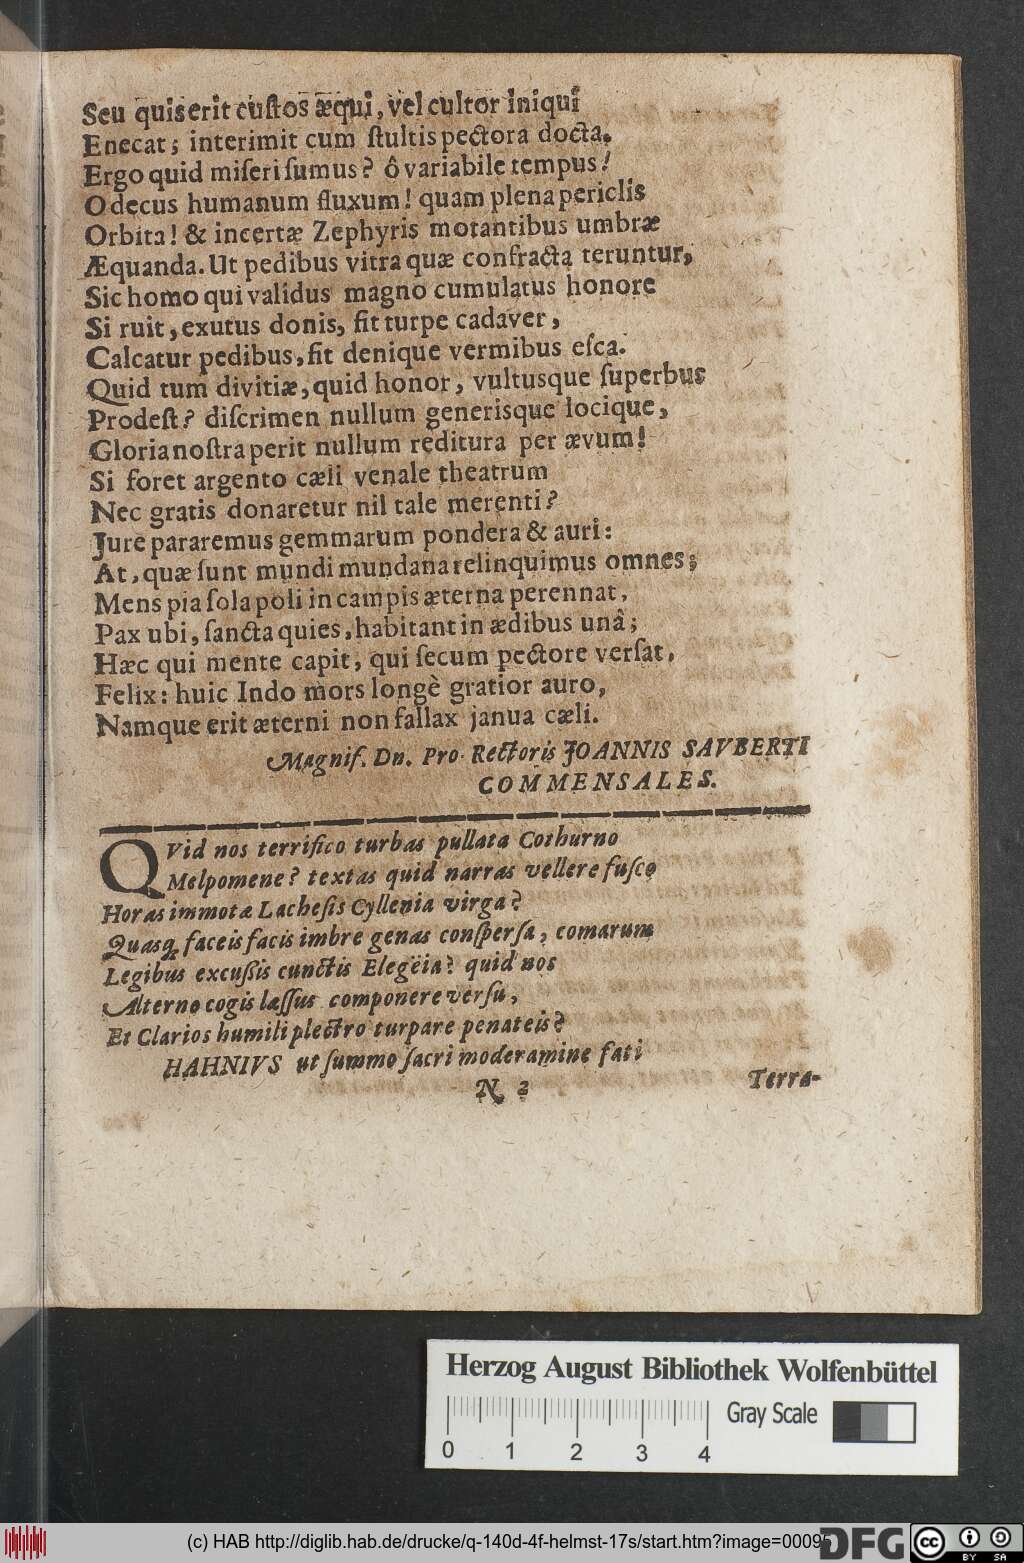 Seu quis erit cuſtos æqui, vel cultor iniqui
Enecat; interimit cum ſtultis pectora docta.
Ergo quid miſeri ſumus? ô variabile tempus!
O decus humanum fluxum! quam plena periclis
Orbita! & incertæ Zephyris motantibus umbræ
Æquanda. Ut pedibus vitra quæ confracta teruntur,
Sic homo qui validus magno cumulatus honore
Si ruit, exutus donis, fit turpe cadaver,
Calcatur pedibus, fit denique vermibus eſca.
Quid tum divitiæ, quid honor, vultusque ſuperbus
Prodeſt? diſcrimen nullum generisque locique,
Gloria noſtra perit nullum reditura per ævum!
Si foret argento cæli venale theatrum
Nec gratis donaretur nil tale merenti?
Jure pararemus gemmarum pondera & auri:
At, quæ ſunt mundi mundana relinquimus omnes;
Mens pia ſola poli in campis æterna perennat,
Pax ubi, ſancta quies, habitant in ædibus unâ;
Hæc qui mente capit, qui ſecum pectore verſat,
Felix: huic Indo mors longè gratior auro,
Namque erit æterni non fallax janua cæli.
Magnif. Dn. Pro-Rectoris JOANNIS SAVBERTI
COMMENSALES.
QVid nos terrifico turbas pullata Cothurno
Melpomene? textas quid narras vellere fuſco
Horas immotæ Lacheſis Cyllenia virga?
Quasq́; faceis facis imbre genas conſperſa, comarum
Legibus excuſſis cunctis Elegëia? quid nos
Alterno cogis laſſus componere verſu,
Et Clarios humili plectro turpare penateis?
HAHNIVS ut ſummo ſacri moderamine fati
N 2 Terra-
Herzog August Bibliothek Wolfenbüttel
Gray Scale
0 1 2 3 4
(c) HAB http://diglib.hab.de/drucke/q-140d-4f-helmst-17s/start.htm?image=00095
DFG
cc BY SA